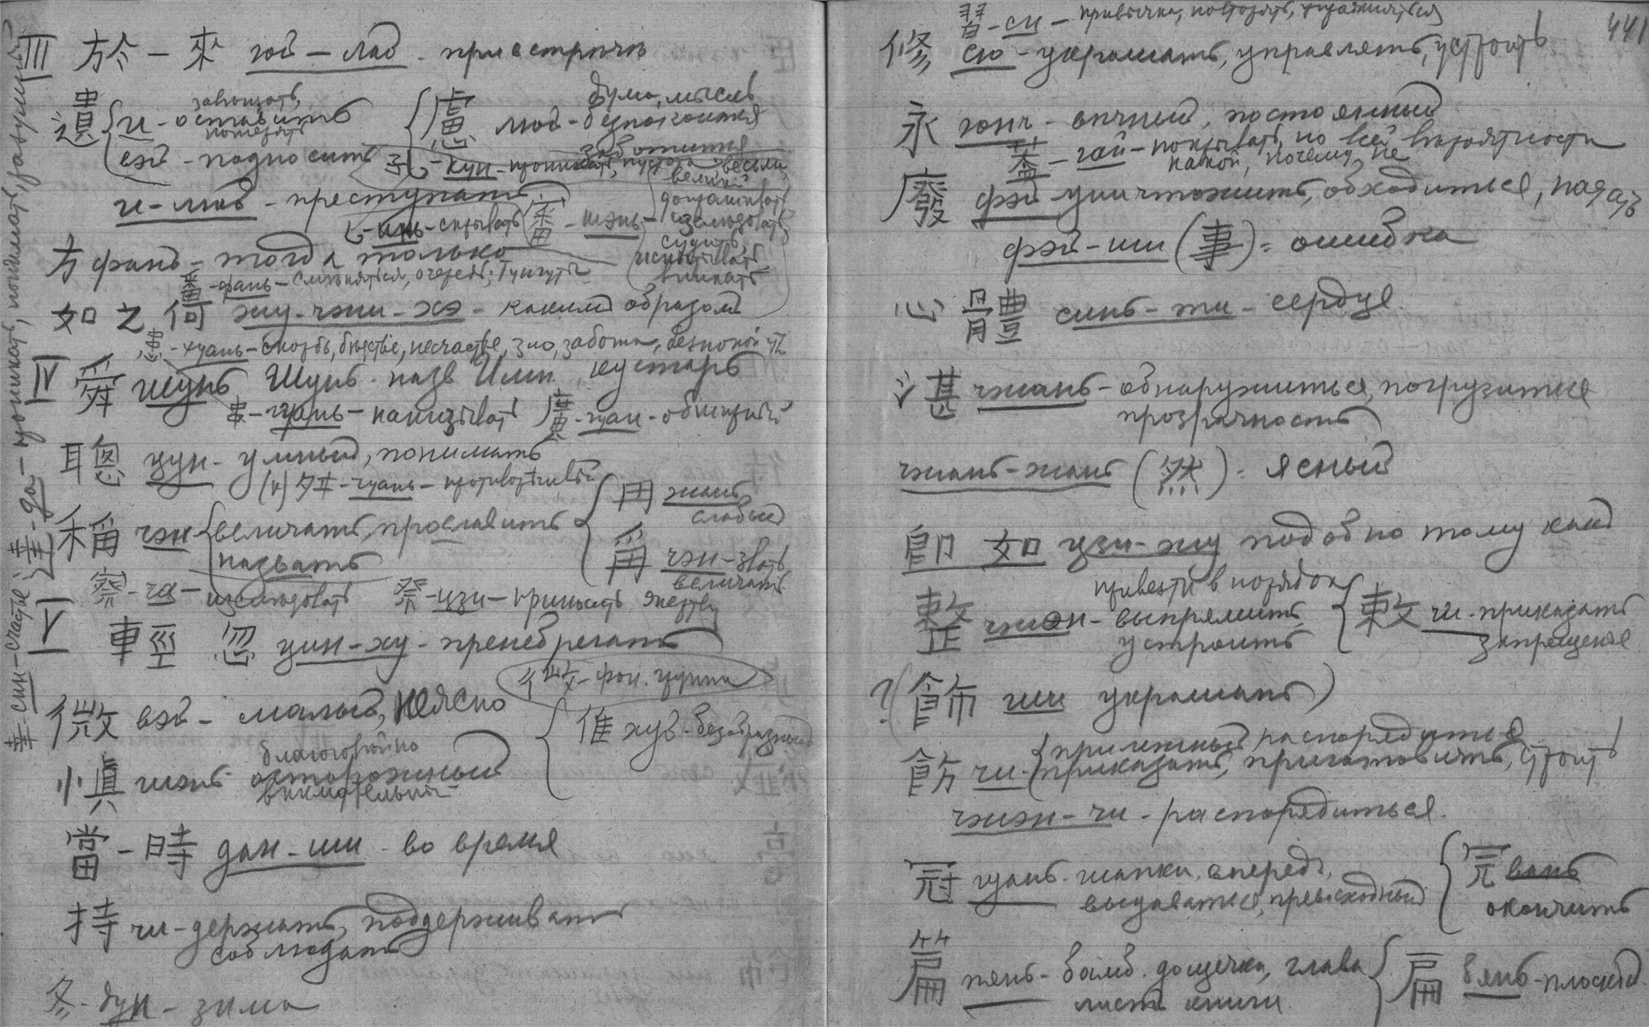 III 於 — 來 юй — лай - при встрече
遺 { и - оставить
завещать,
потерять
вэй - подносить
慮 люй - беспокоиться
дума, мысль
заботиться
孔 - кун - проникать, пустота, весьма,
великий
и - люй - преступать
乚 - инь - скрывать
審 - шэнь - допрашивать
исследовать
судить,
испытывать
вникать
方 фань - тогда только
番 - фань - сменяться, очередь, тунгуты
如之何 жу - чжи - хэ - каким образом
患 - хуань - скорбь, бедствие, несчастье, зло, забота, беспокойст
IV 舜 шунь Шунь - назв Имп. кустарь
串 - гуань - нанизывать 廣 - гуан - обширный
聰 цун - умный, понимать
舛 - чуань - противоречивый
稱 чэн { величать, прославить
назвать
冉 жань
слабый
爯 чэн - звать
величать
察 - ча - исследовать 祭 - цзи - приносить жертву
V 輕忽 цин - ху - пренебрегать
фон. группа
微 вэй - малый, неясно
倠 хуэй - безобразный
慎 шэнь - осторожный
благоговейно
внимательный
當 — 時 дан - ши - во время
持 чи - держать, поддерживать
соблюдать
冬 - дун - зима
幸 син - счастье 達 - да - проникать, понимать, разумный
441
習 - си - привычка, повторять, упражняться
修 сю - украшать, управлять, устроить
永 юнь - вечный, постоянный
蓋 - гай - покрывать, по всей вероятности
какой, почему не
廢 фэй уничтожить, обходиться, падать
фэй - ши (事) = ошибка
心體 синь - ти - сердце
湛 чжань - обнаружиться, погрузиться
прозрачность
чжань - жань (然) - ясный
即如 цзи - жу подобно тому как
整 чжэн - выпрямить
привести в порядок
устроить
敕 чи - приказать
запрещение
?(飾 ши украшать)
飭 чи { прилежный, распорядиться
приказать, приготовить, устроить
чжэн - чи - распорядиться.
冠 гуань - шапка, впереди,
выдаваться, превосходный
完 вань
окончить
篇 пянь - бамб. дощечка, глава
лист книги.
扁 бянь - плоский